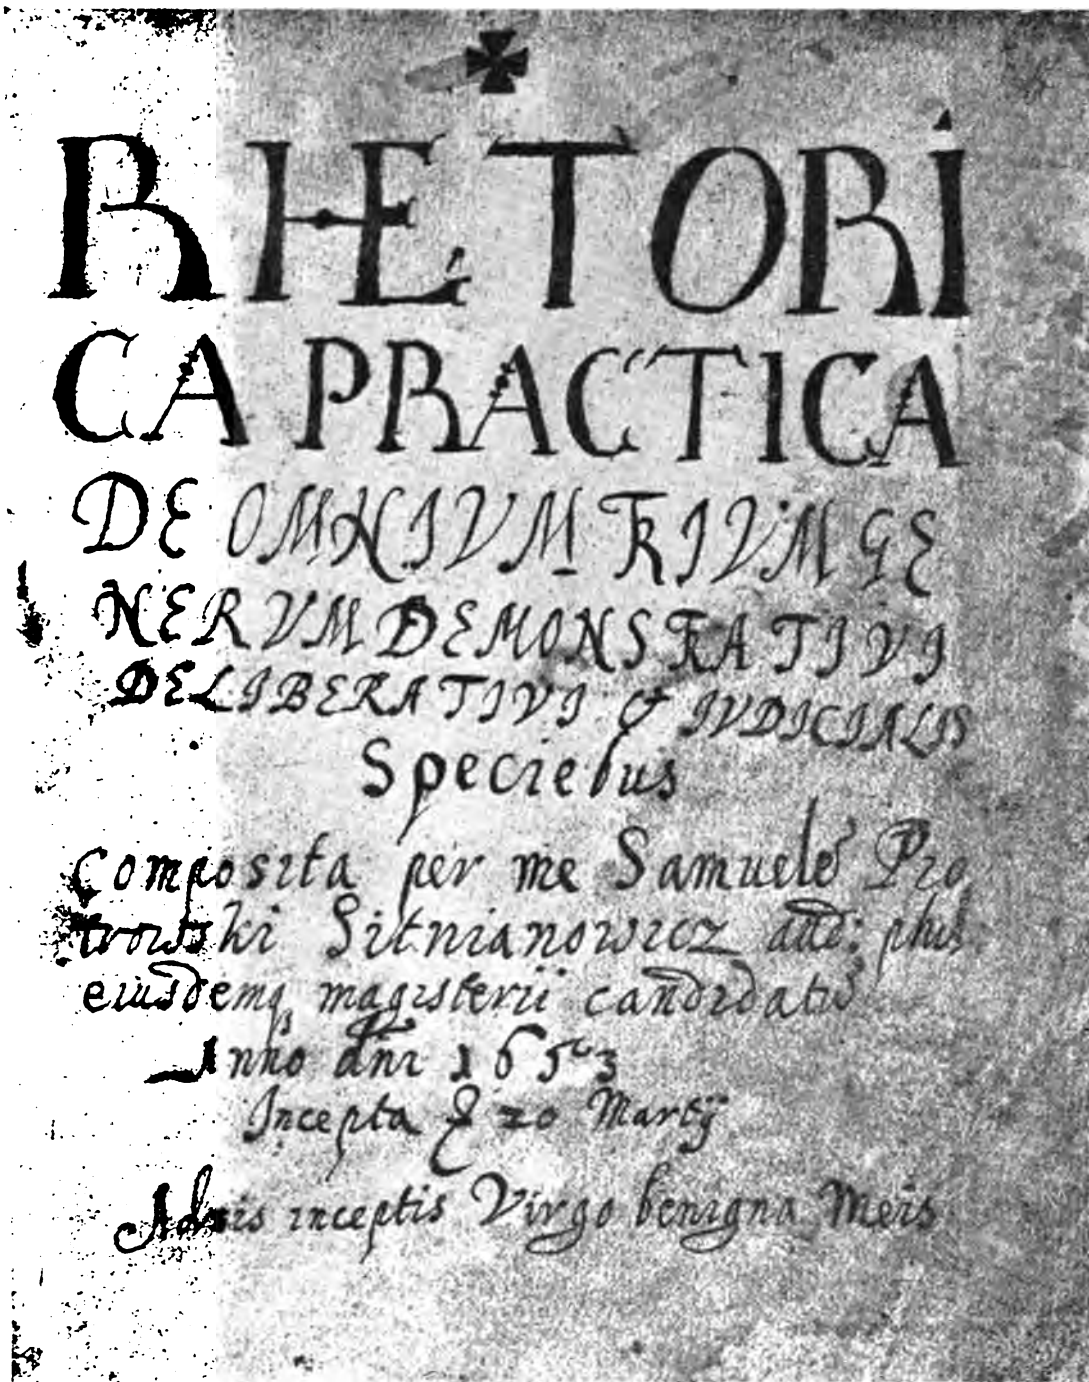 RHETORI
CA PRACTICA
DE OMNIVM TRIVM GE
NERVM DEMONSTRATIVI
DELIBERATIVI & IVDICIALIS
Speciebus
Composita per me Samuele Pio
trovski Sitnianowicz
eiusdemq magisterii candidato
Anno dni 1653
Incepta 20 Martij
Adsis inceptis Virgo benigna Meis